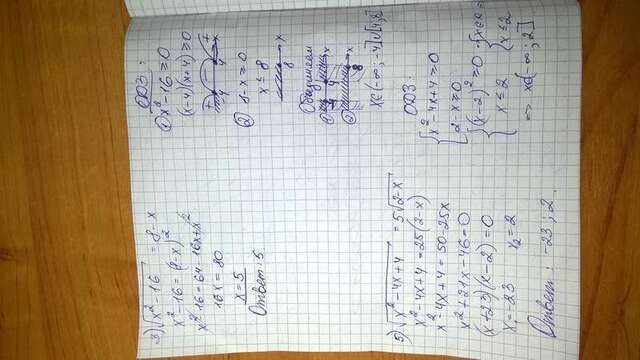 3) √(x² - 16) = 8 - x
x² - 16 = (8 - x)²
x² - 16 = 64 - 16x + x²
16x = 80
x = 5
Ответ: 5
ОДЗ:
① x² - 16 ≥ 0
(x-4)(x+4) ≥ 0
+ - +
-4 4 x
② 8 - x ≥ 0
x ≤ 8
8 x
Объединяем
① -4 4 x
② 8 x
x∈(-∞; -4]∪[4; 8]
5) √(x² - 4x + 4) = 5√(2-x)
x² - 4x + 4 = 25(2-x)
x² - 4x + 4 = 50 - 25x
x² + 21x - 46 = 0
(x+23)(x-2) = 0
x₁ = -23 x₂ = 2
Ответ: -23; 2.
ОДЗ:
{ x² - 4x + 4 ≥ 0
2 - x ≥ 0
{ (x-2)² ≥ 0 { x∈R
x ≤ 2 x ≤ 2
=> x∈(-∞; 2]